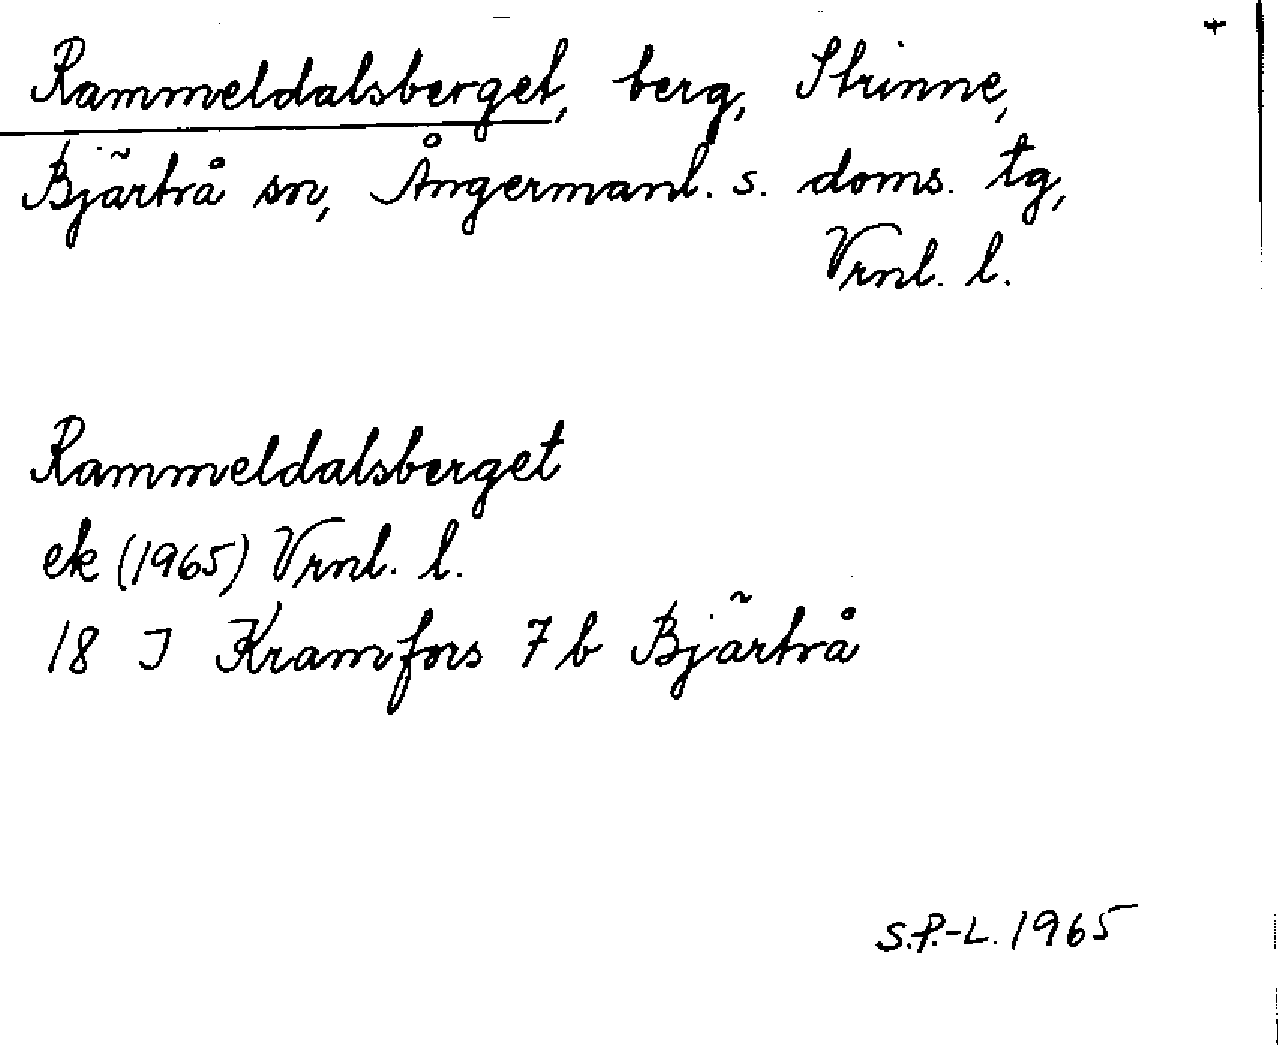 Rammeldalsberget, berg, Strinne,
Bjärtrå sn, Ångermanl. s. doms. tg,
Vrnl. l.
Rammeldalsberget
ek (1965) Vrnl. l.
18 I Kramfors 7 b Bjärtrå
S.P.-L. 1965